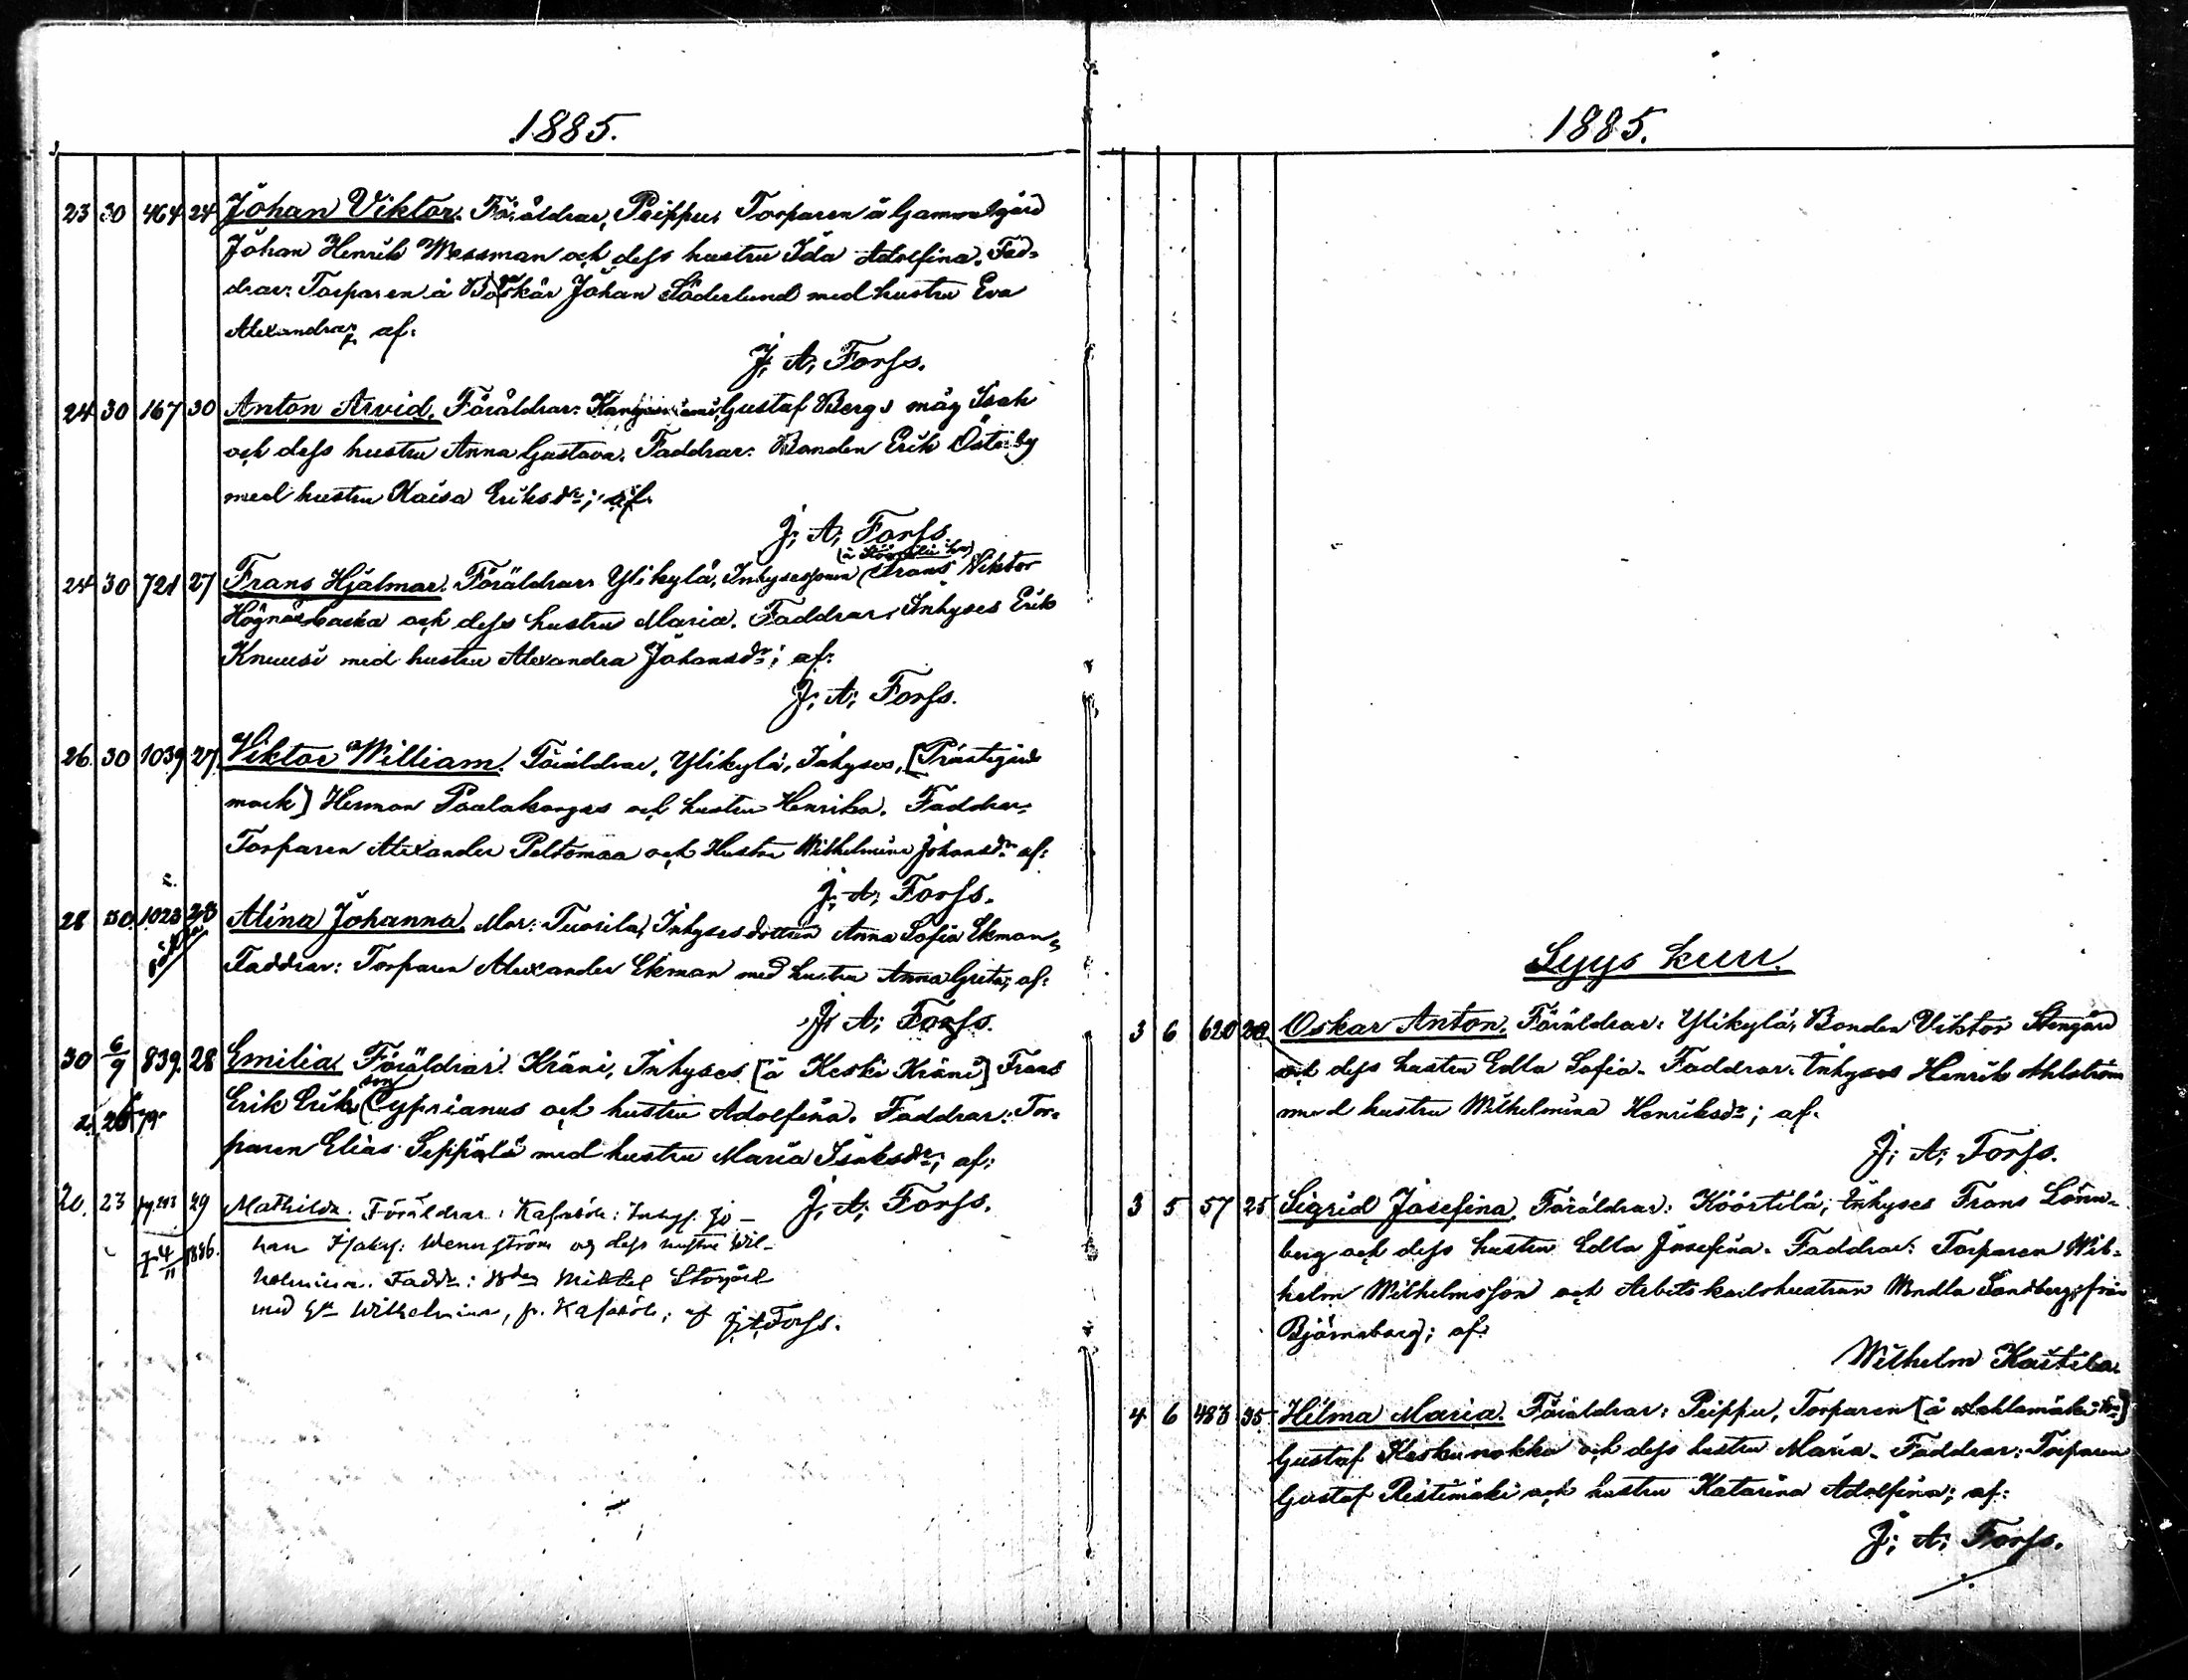 1885.
23 30 464 24 Johan Viktor. Föräldrar, Peippu, Torparen å Gammelgård
Johan Henrik Messman och dess hustru Ida Adolfina. Fad-
drar: Torparen å Johan Söderlund med hustru Eva
Alexandra, af:
J. A. Forss.
24 30 167 30 Anton Arvid. Föräldrar: Gustaf Bergs måg Isak
och dess hustru Anna Gustava. Faddrar: Bonden Erik Österby
med hustru Kaisa Eriksdr; af.
J. A. Forss.
24 30 721 27 Frans Hjalmar. Föräldrar: Ylikylä, Frans Viktor
och dess hustru Maria. Faddrar: Inhyses Erik
Knuusi med hustru Alexandra Johansdr; af:
J. A. Forss.
26. 30 1039 27 Viktor William. Föräldrar, Ylikylä, Inhyses, [Prästgårds
mark] Herman och hustru Henrika. Faddrar:
Torparen Alexander Peltomaa och Hustru Wilhelmina Johansdr af:
J. A. Forss.
28 30. 1023 23 Alina Johanna. Mor: Tuorila, Inhysesdottren Anna Sofia Ekman,
Faddrar: Torparen Alexander Ekman med hustru Anna Greta; af:
J. A. Forss.
30 6/9 839. 28 Emilia. Föräldrar: Kräni, Inhyses [å Keski Kräni] Frans
Erik Eriksson Cyprianus och hustru Adolfina. Faddrar: Tor-
paren Elias Seppälä med hustru Maria Isaksdr; af:
J. A. Forss.
20. 23 29 Mathilda. Föräldrar: Kasaböle: Inhys. Jo-
han Isaks. Wennström och dess hustru Wil-
helmina. Faddr: Mikkel Storgård
4/11 1886.
med Wilhelmina, fr. Kasaböle; af J. A. Forss.
1885.
Syys kuu.
3 6 620 Oskar Anton. Föräldrar: Ylikylä, Bonden Viktor Stengård
och dess hustru Edla Sofia. Faddrar: Inhyses Henrik Ahlström
med hustru Wilhelmina Henriksdr; af.
J. A. Forss.
3 5 57 25 Sigrid Josefina. Föräldrar: Köörtilä; Inhyses Frans Lönn-
berg och dess hustru Edla Josefina. Faddrar: Torparen Wil-
helm Wilhelmsson och Arbetskarlshustrun Wendla Sandberg från
Björneborg; af:
Wilhelm Kastila.
4 6 483 35 Hilma Maria. Föräldrar: Peippu, Torparen [å
Gustaf Keskinokka och dess hustru Maria. Faddrar: Torparen
Gustaf Ristimäki och hustru Katarina Adolfina; af:
J. A. Forss.